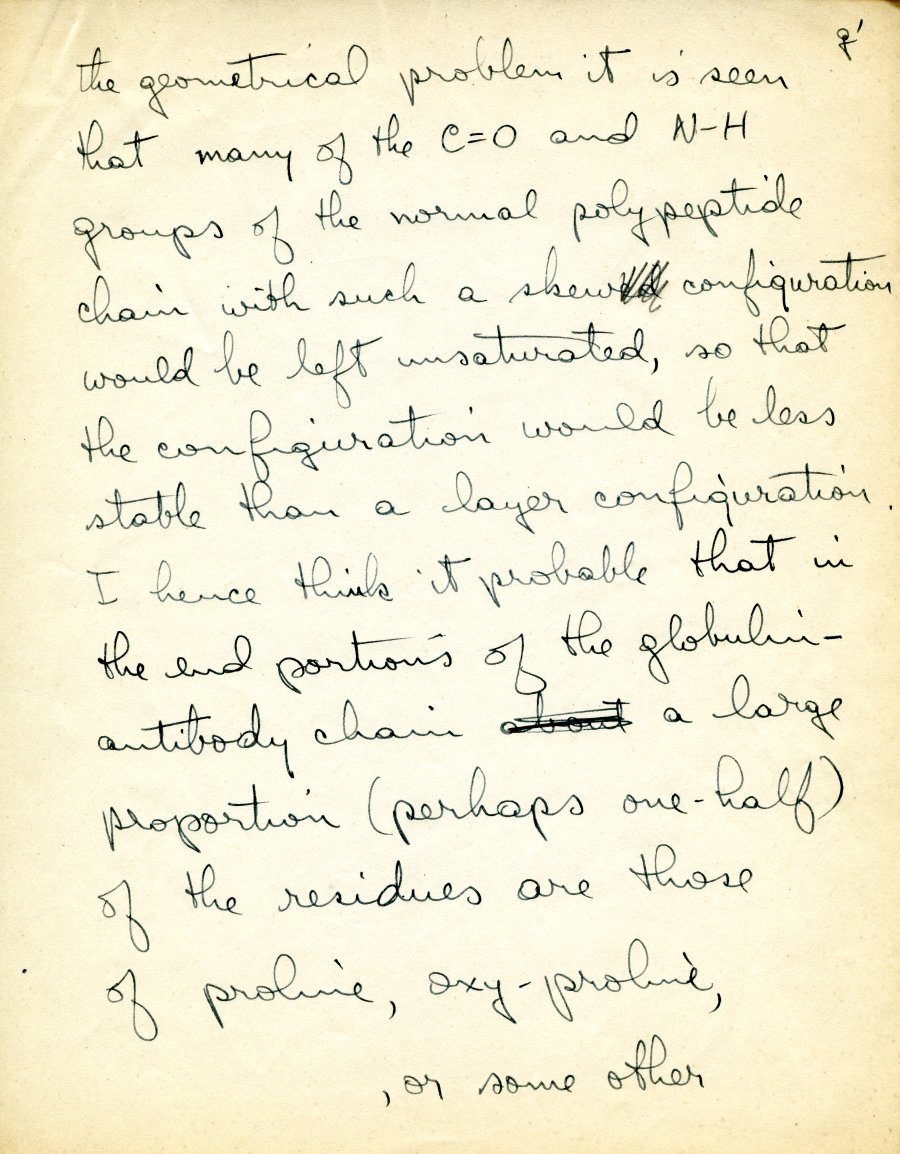 g'
the geometrical problem it is seen
that many of the C=O and N-H
groups of the normal polypeptide
chain with such a skew configuration
would be left unsaturated, so that
the configuration would be less
stable than a layer configuration.
I hence think it probable that in
the end portions of the globulin-
antibody chain about a large
proportion (perhaps one-half)
of the residues are those
of proline, oxy-proline,
, or some other